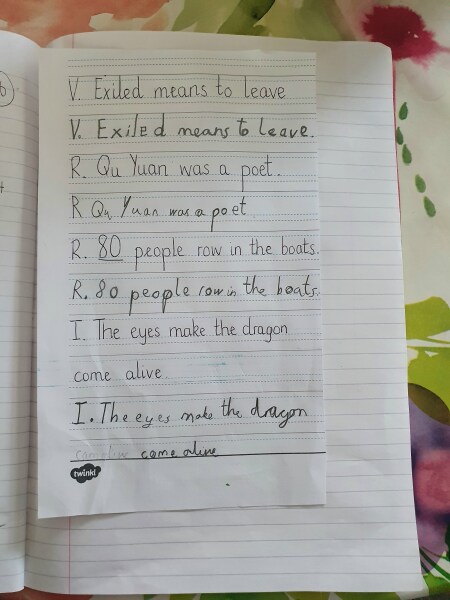 V. Exiled means to leave
V. Exiled means to leave.
R. Qu Yuan was a poet.
R Qu Yuan was a poet
R. 80 people row in the boats.
R. 80 people row in the boats.
I. The eyes make the dragon
come alive.
I. The eyes make the dragon
come alive
twinkl